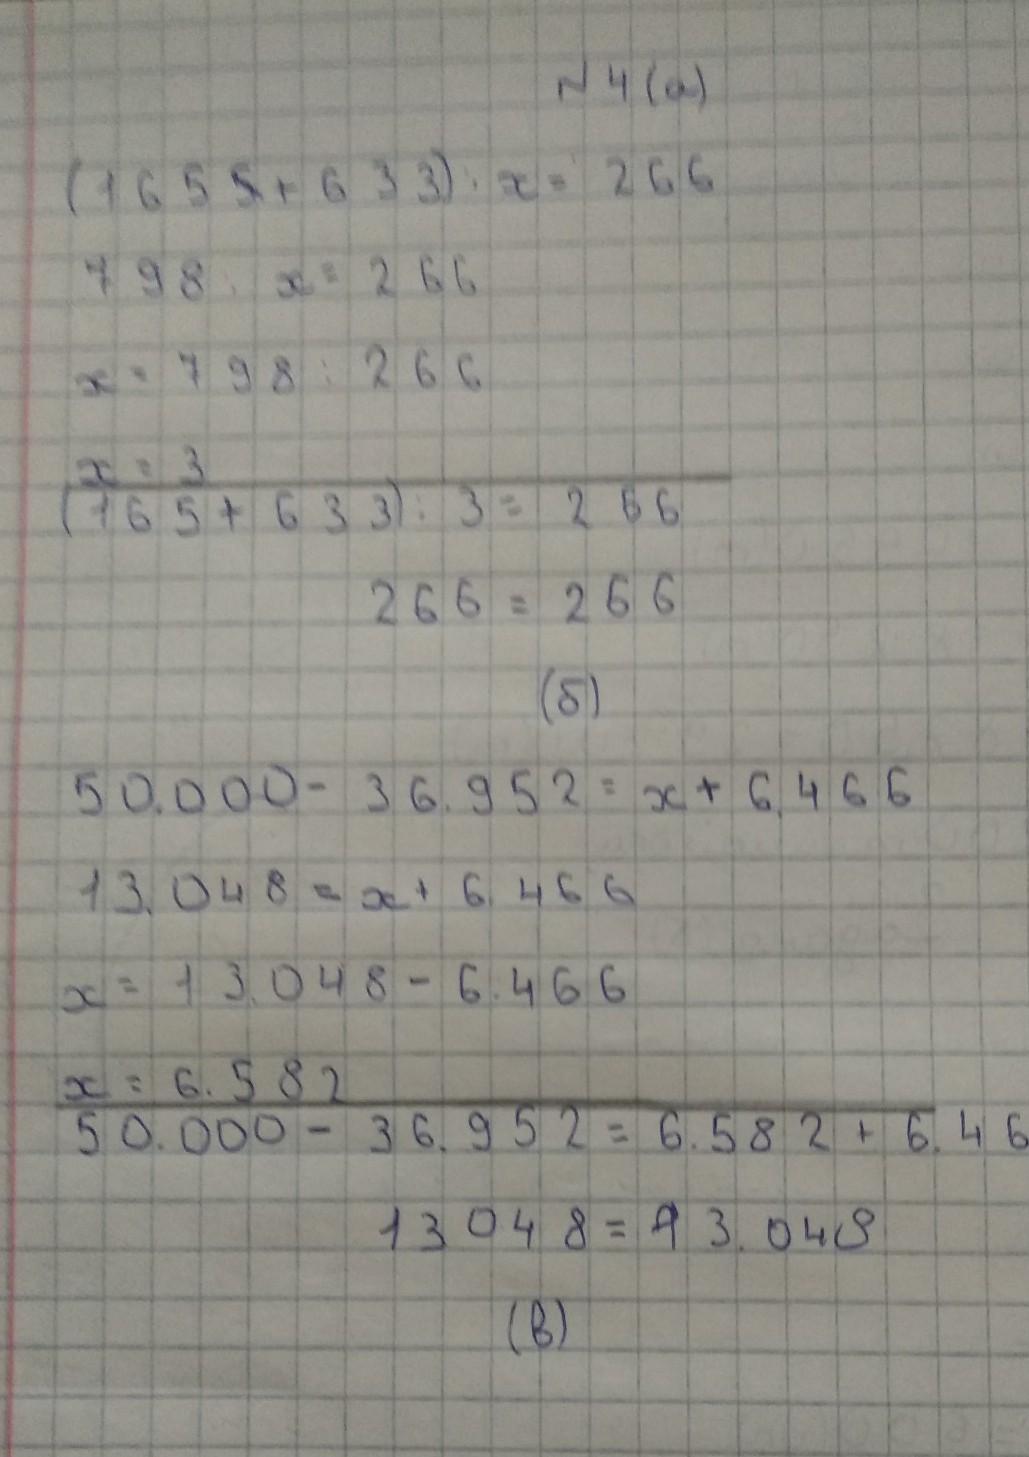 № 4 (а)
(1655+633) : x = 266
798 : x = 266
x = 798 : 266
x = 3
(165+633) : 3 = 266
266 = 266
(б)
50.000 - 36.952 = x + 6.466
13.048 = x + 6.466
x = 13.048 - 6.466
x = 6.582
50.000 - 36.952 = 6.582 + 6.46
13048 = 13.048
(в)